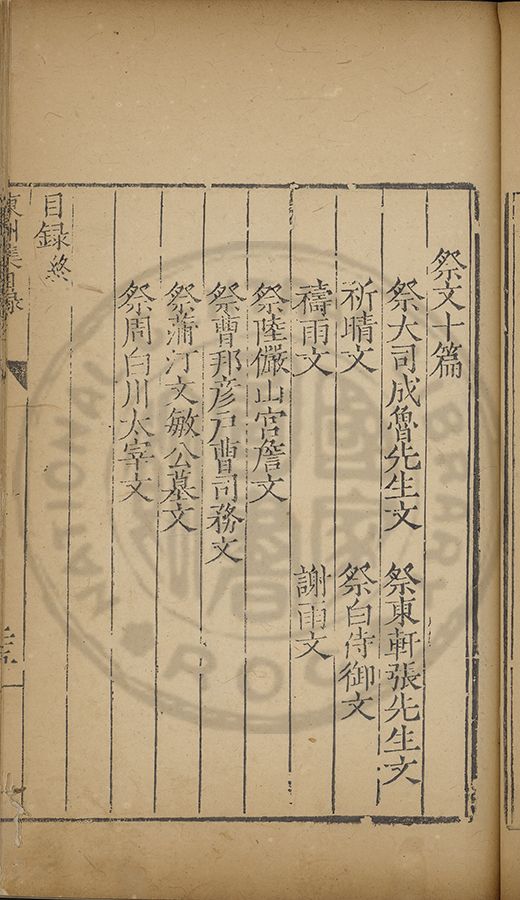 祭文十篇
祭大司成魯先生文　祭東軒張先生文
祈晴文　祭白侍御文
禱雨文　謝雨文
祭陸儼山宮詹文
祭曹邦彥戶曹司務文
祭蒲汀文敏公墓文
祭周白川太宰文
目録終
集目録